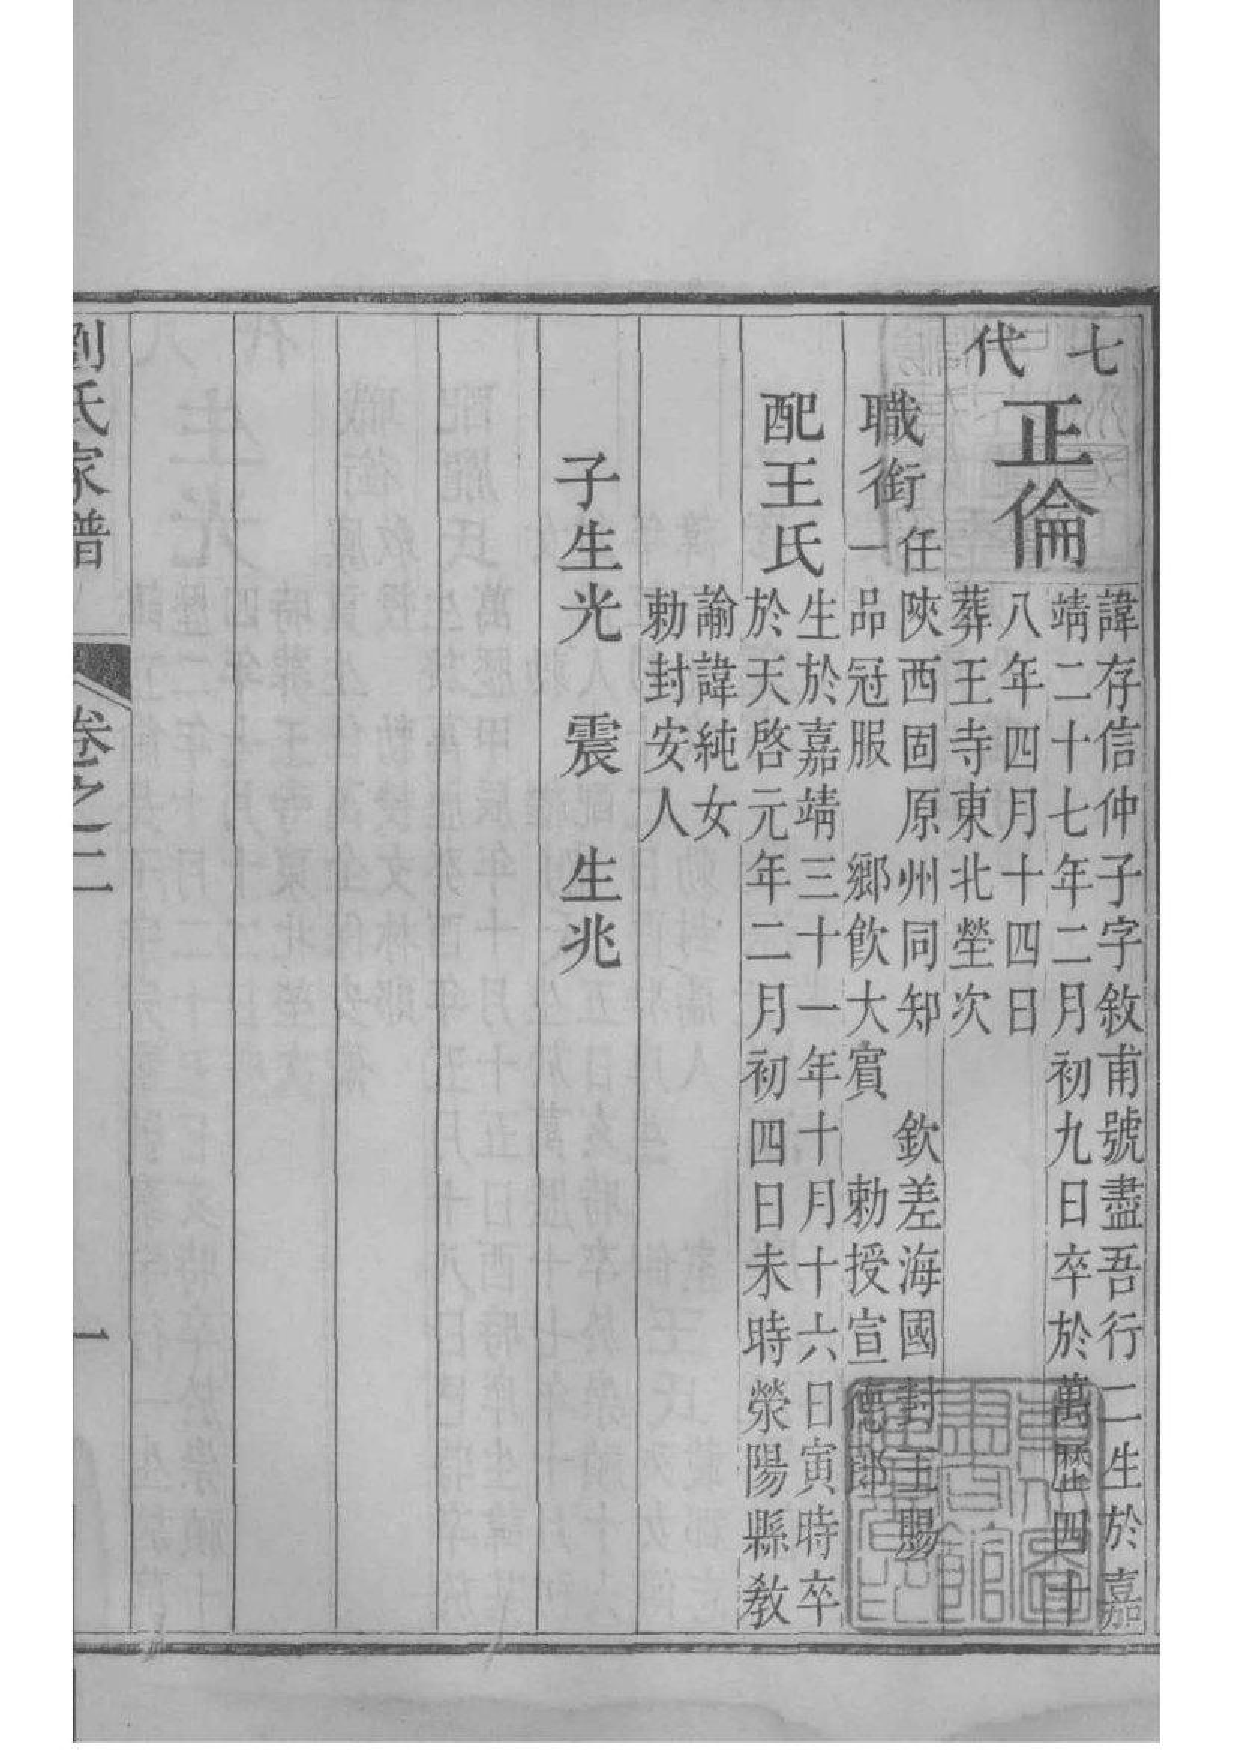 七代
正倫
諱存信仲子字敘甫號盡吾行二生於嘉
靖二十七年二月初九日卒於萬歷四十
八年四月十四日
葬王寺東北塋次
職銜
任陝西固原州同知 欽差海國封王賜
一品冠服 鄉飲大賓 勅授宣德郎
配王氏
生於嘉靖三十一年十月十六日寅時卒
於天啓元年二月初四日未時滎陽縣教
諭諱純女
勅封安人
子生光 震 生兆
劉氏家譜
卷之二
一